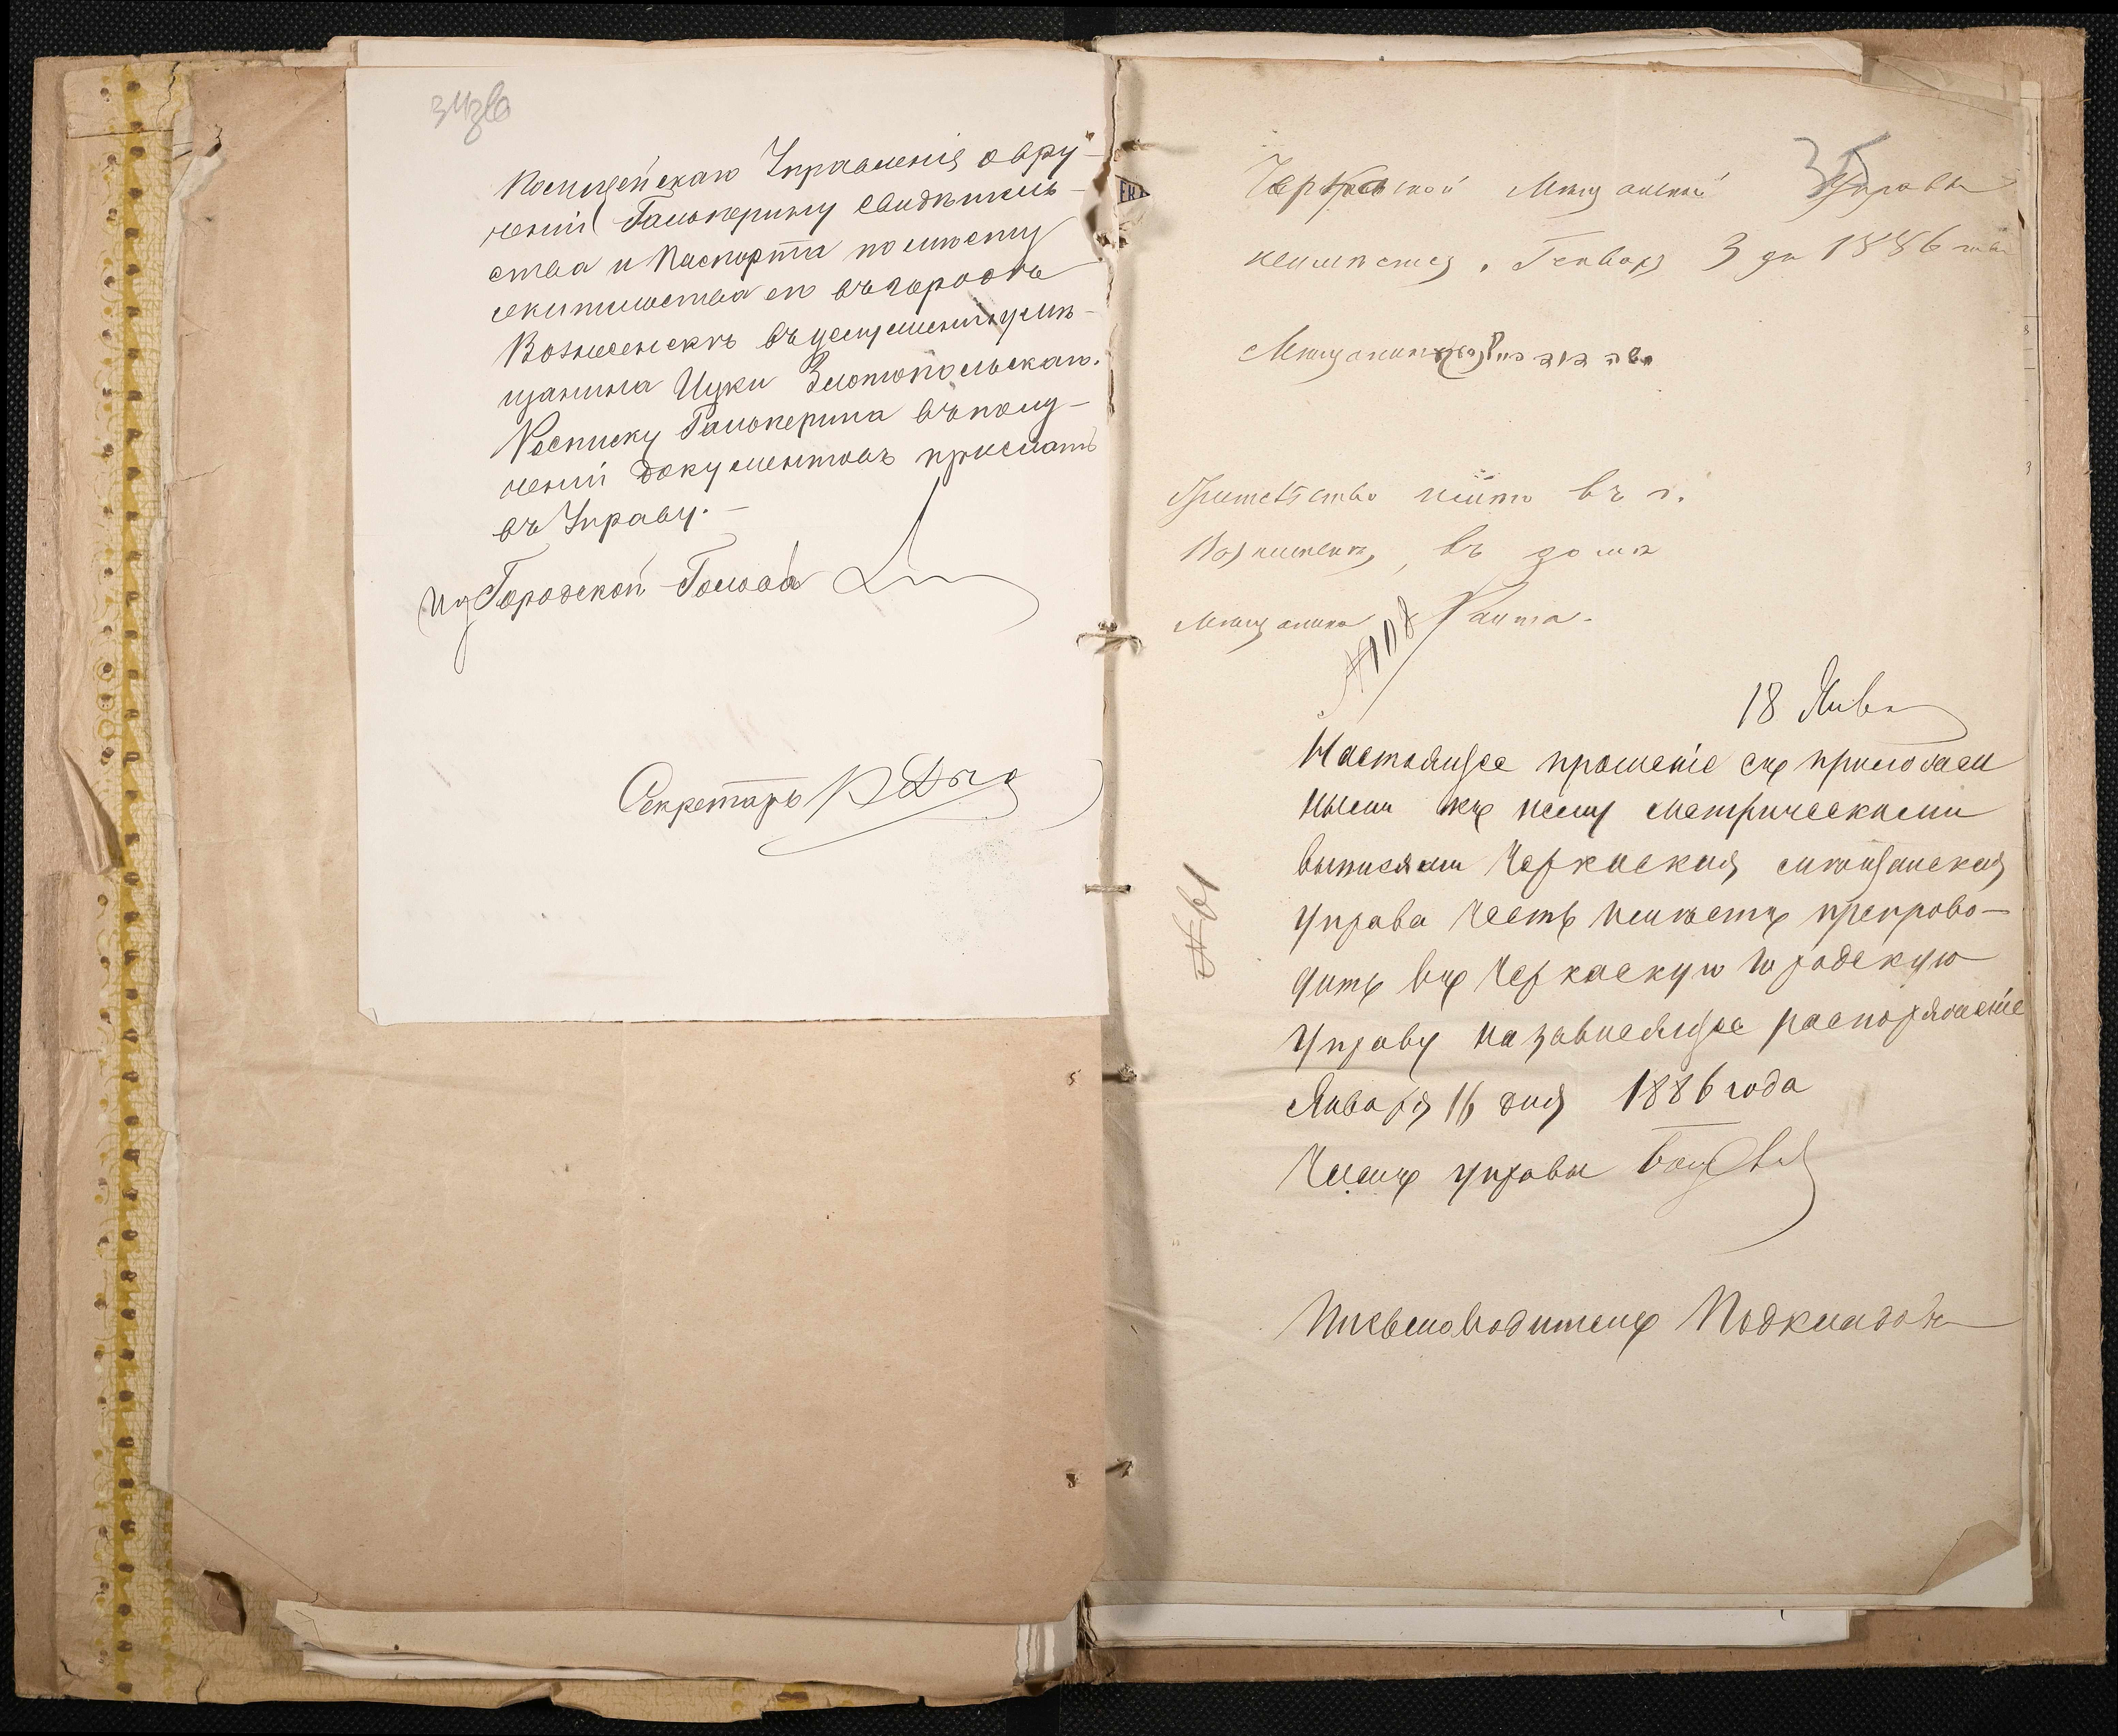 34 зв
Полицейскаго Управленія о вру-
ченіи Гальперину свидѣтель-
ства и Паспорта по мѣсту
жительства его въ городѣ
Вознесенскѣ въ домѣ мѣ-
щанина Ицки Златопольскаго.
Росписку Гальперина въ полу-
ченіи документовъ прислать
въ Управу.-
Городской Голова
Секретарь
35
Черкаской Мѣщанской Управы
Генваря 3 дня 1886 года
Мѣщанинъ
Жительство имѣю въ г.
Вознесенскѣ, въ домѣ
Мѣщанина
№ 108
18 Янв
Настоящее прошеніе съ приложен
ными къ нему метрическими
выписями Черкаская мѣщанская
управа честь имѣетъ препрово-
дить въ Черкаскую городскую
Управу на зависящее распоряженіе
Января 16 дня 1886 года
Членъ управы
№ 61
Письмоводитель Подкладовъ